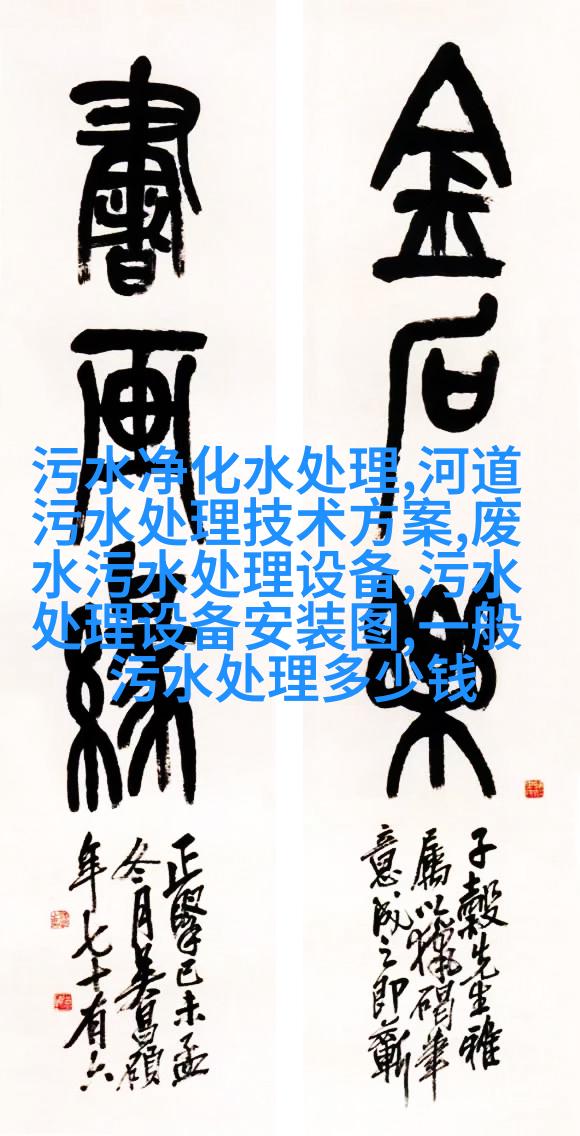 金石樂
子穀先生雅
屬以猎碣筆
意成之即蘄
書画緣
正擥己未孟
冬月吴昌碩
年七十有六
污水净化水处理,河道
污水处理技术方案,废
水污水处理设备,污水
处理设备安装图,一般
污水处理多少钱